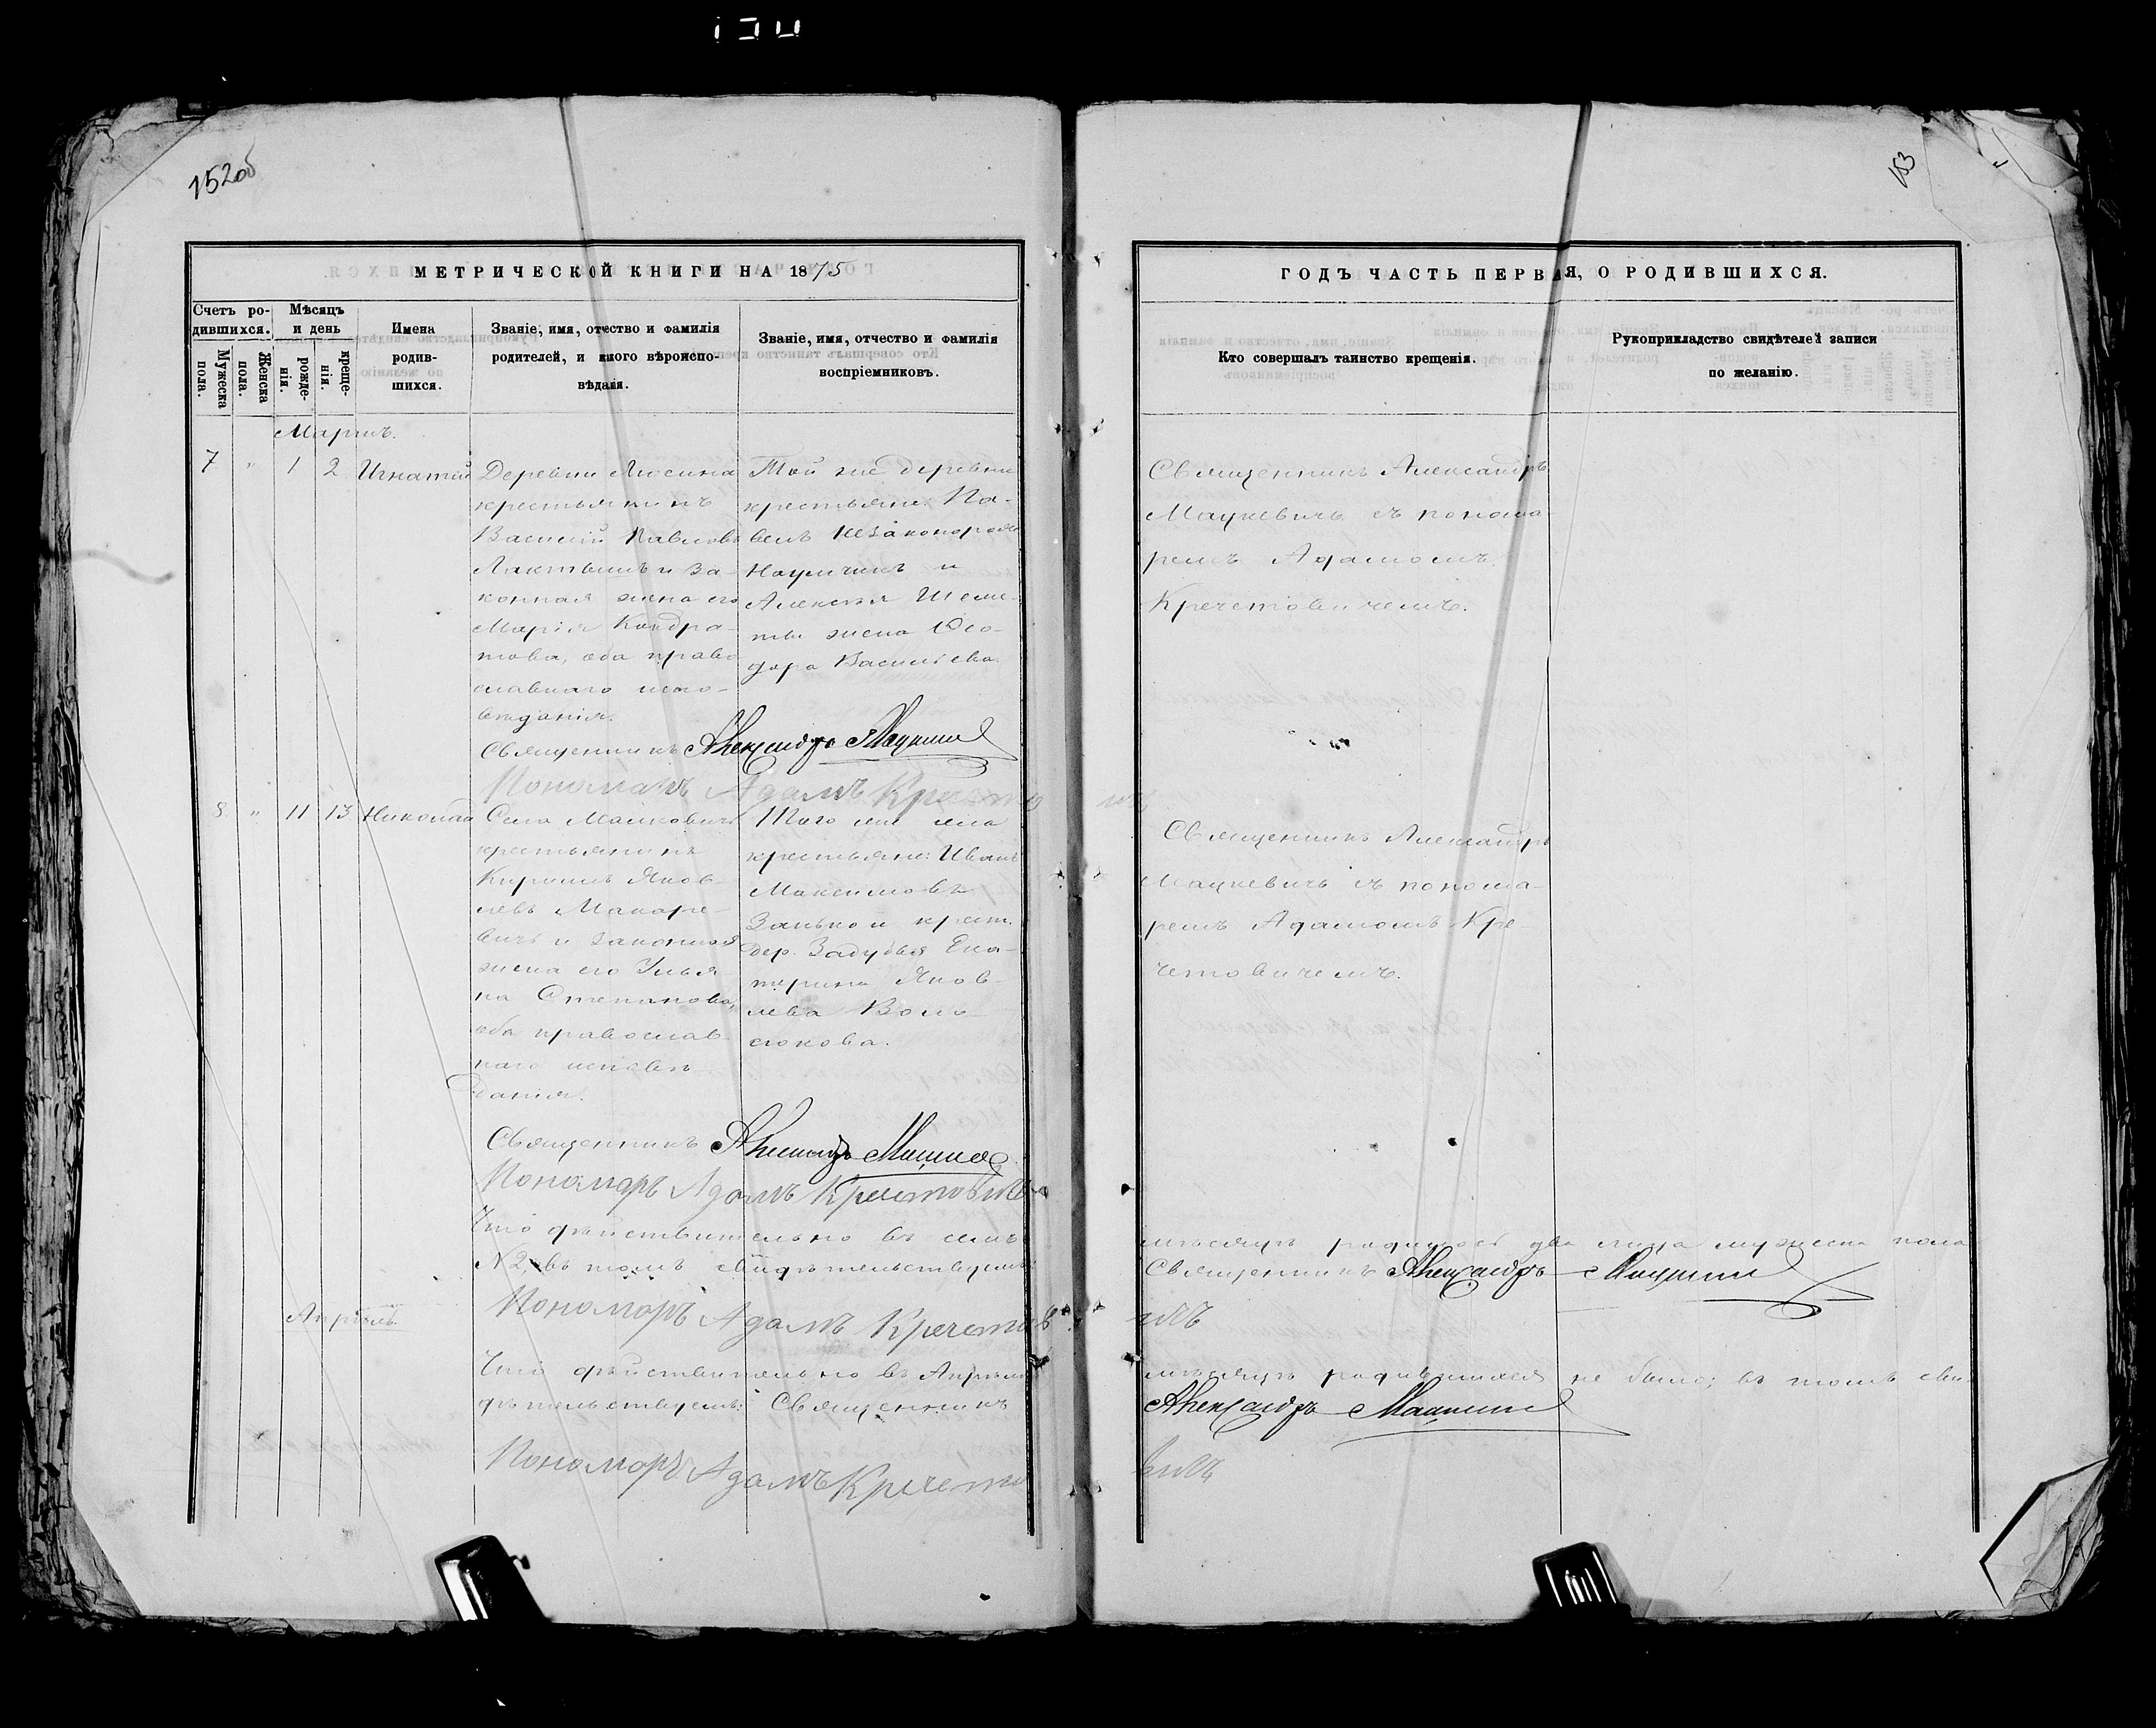 152об
153
МЕТРИЧЕСКОЙ КНИГИ НА 1875
ГОДЪ ЧАСТЬ ПЕРВАЯ, О РОДИВШИХСЯ.
Счетъ ро-
дившихся.
Мужеска
пола.
Женска
пола.
Мѣсяцъ
и день
рожде-
нія.
креще-
нія.
Имена
родив-
шихся.
Званіе, имя, отчество и фамилія
родителей, и какого вѣроиспо-
вѣданія.
Званіе, имя, отчество и фамилія
воспріемниковъ.
Кто совершалъ таинство крещенія.
Рукоприкладство свидѣтелей записи
по желанію.
Мартъ.
7 " 1 2 Игнатій
Деревни Люсина
крестьянинъ
Василій Павловъ
и за-
конная жена его
Марія Кондра-
това, оба право
славнаго испо-
вѣданія.
Той же деревни
крестьяне: Па-
велъ незаконорож
Наумчикъ и
Алексѣя Шеме-
та жена Ѳео-
дора Васильева.
Священникъ Александръ
Мацкевичъ съ понома-
ремъ Адамомъ
Кречетовичемъ.
Священникъ Александръ Мацкевич
Пономарь Адамъ Кречетовичъ
8 " 11 13 Николай
Села Малковичъ
крестьянинъ
Кириллъ Яков-
левъ Макаре-
вичъ и законная
жена его Улья-
на Степанова,
оба православ-
наго исповѣ-
данія.
Того же села
крестьяне: Иванъ
Максимовъ
Занько и крест.
дер. Задубья Ека-
терина Яков-
лева
Священникъ Александръ
Мацкевичъ съ понома-
ремъ Адамомъ Кре-
четовичемъ.
Священникъ Александръ Мацкевич
Пономарь Адамъ Кречетовичъ
Что дѣйствительно въ семъ мѣсяцѣ родилось два лица мужеска пола
№ 2, въ томъ свидѣтельствуемъ: Священникъ Александръ Мацкевич
Пономарь Адамъ Кречетовичъ
Апрѣль.
Что дѣйствительно въ Апрѣлѣ мѣсяцѣ родившихся не было; въ томъ сви-
дѣтельствуемъ: Священникъ Александръ Мацкевич
Пономарь Адамъ Кречетовичъ